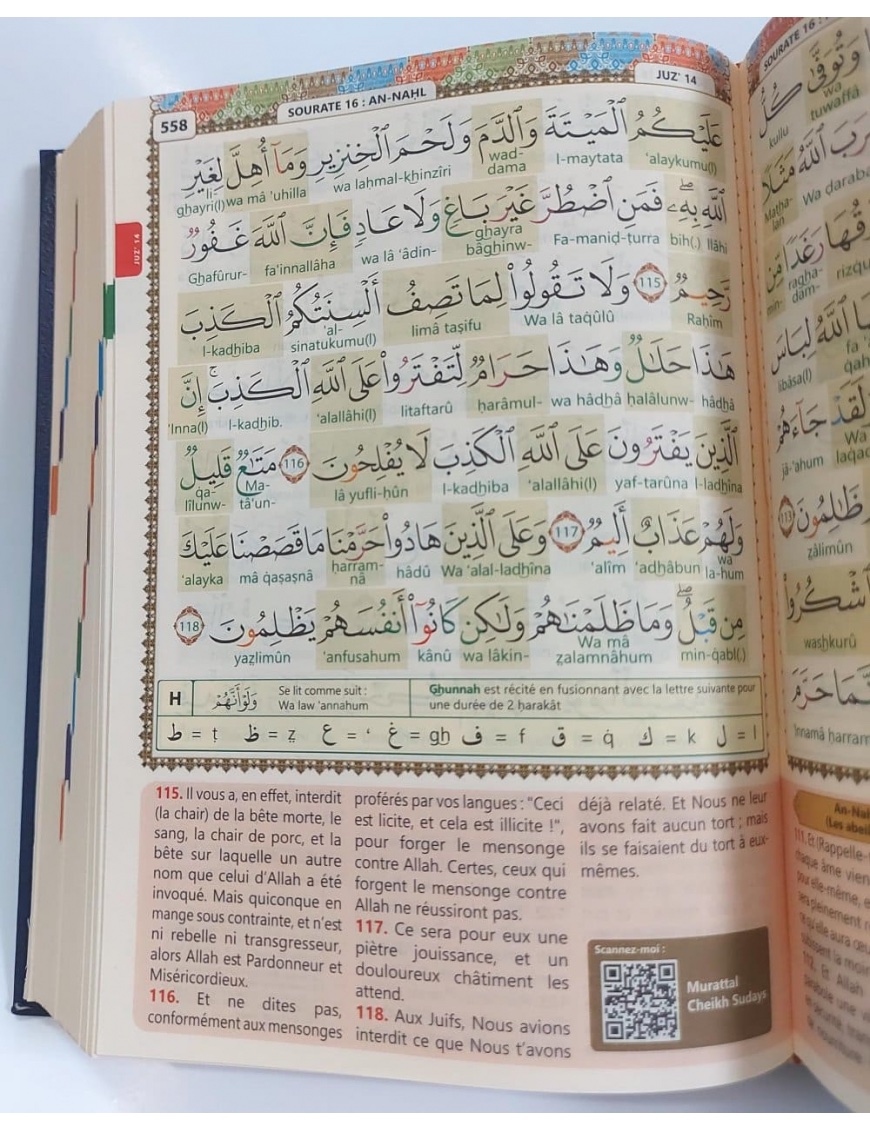 558
SOURATE 16 : AN-NAḤL
JUZ' 14
JUZ' 14
عَلَيْكُمُ الْمَيْتَةَ وَالدَّمَ وَلَحْمَ الْخِنزِيرِ وَمَآ أُهِلَّ لِغَيْرِ
'alaykumu(l) l-maytata wad-dama wa lahmal-khinzîri wa mâ 'uhilla li-ghayri(l)
اللَّهِ بِهِۦ فَمَنِ اضْطُرَّ غَيْرَ بَاغٍ وَلَا عَادٍ فَإِنَّ اللَّهَ غَفُورٌ
llâhi bih(.) Fa-maniḍ-ṭurra ghayra bâghinw- wa lâ 'âdin- fa'innallâha Ghafûrur-
رَّحِيمٌ 115 وَلَا تَقُولُوا لِمَا تَصِفُ أَلْسِنَتُكُمُ الْكَذِبَ
Rahîm Wa lâ taqûlû limâ taṣifu 'al-sinatukumu(l) l-kadhiba
هَٰذَا حَلَالٌ وَهَٰذَا حَرَامٌ لِّتَفْتَرُوا عَلَى اللَّهِ الْكَذِبَ ۚ إِنَّ
hâdhâ halâlunw- wa hâdhâ ḥarâmul- litaftarû 'alallâhi(l) l-kadhib. 'Inna(l)
الَّذِينَ يَفْتَرُونَ عَلَى اللَّهِ الْكَذِبَ لَا يُفْلِحُونَ 116 مَتَاعٌ قَلِيلٌ
l-ladhîna yaf-tarûna 'alallâhi(l) l-kadhiba lâ yufli-ḥûn Ma-tâ'un- qa-lîlunw-
وَلَهُمْ عَذَابٌ أَلِيمٌ 117 وَعَلَى الَّذِينَ هَادُوا حَرَّمْنَا مَا قَصَصْنَا عَلَيْكَ
wa la-hum 'adhâbun 'alîm Wa 'alal-ladhîna hâdû ḥarram-nâ mâ qaṣaṣnâ 'alayka
مِن قَبْلُ ۖ وَمَا ظَلَمْنَاهُمْ وَلَٰكِن كَانُوٓا أَنفُسَهُمْ يَظْلِمُونَ 118
min-qabl(.) Wa mâ ẓalamnâhum wa lâkin- kânû 'anfusahum yaẓlimûn
H وَلَوْ أَنَّهُمْ Se lit comme suit : Wa law 'annahum
Ghunnah est récité en fusionnant avec la lettre suivante pour
une durée de 2 ḥarakât
ط = ṭ ظ = ẓ ع = ‘ غ = gh ف = f ق = q ك = k ل = l
115. Il vous a, en effet, interdit
(la chair) de la bête morte, le
sang, la chair de porc, et la
bête sur laquelle un autre
nom que celui d'Allah a été
invoqué. Mais quiconque en
mange sous contrainte, et n'est
ni rebelle ni transgresseur,
alors Allah est Pardonneur et
Miséricordieux.
116. Et ne dites pas,
conformément aux mensonges
proférés par vos langues : "Ceci
est licite, et cela est illicite !",
pour forger le mensonge
contre Allah. Certes, ceux qui
forgent le mensonge contre
Allah ne réussiront pas.
117. Ce sera pour eux une
piètre jouissance, et un
douloureux châtiment les
attend.
118. Aux Juifs, Nous avions
interdit ce que Nous t'avons
déjà relaté. Et Nous ne leur
avons fait aucun tort ; mais
ils se faisaient du tort à eux-
mêmes.
Scannez-moi :
Murattal
Cheikh Sudays
SOURATE 16 :
وَتُوَفَّىٰ كُلُّ
wa tuwaffâ kullu
Wa daraba
Matha-lan
رَغَدًا مِّن
ragha-dam- min-
اللَّهُ لِبَاسَ
libâsa(l)
لَقَدْ جَآءَهُمْ
Wa laqad jâ-'ahum
ظَالِمُونَ 113
ẓâlimûn
washkurû